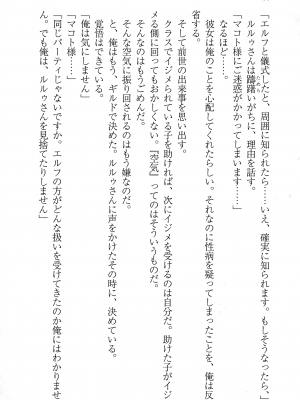 「エルフと儀式したと、周囲に知られたら……いえ、確実に知られます。もしそうなったら、
ルルゥさんは躊躇いがちに、理由を話す。
マコト様にご迷惑がかかってしまいます……」
なるほど……。
彼女は俺のことを心配してくれたらしい。それなのに性病を疑ってしまったことを、俺は反
省する。
そして前世の出来事を思い出す。
クラスでイジメられている子を助ければ、次にイジメを受けるのは自分だ。助けた子がイジ
める側に回っておかしくない。『空気』ってのはそういうものだ。
そんなのはもうごめんだ。
そんな空気に振り回されるのはもう嫌なのだ。
と、俺はもうギルドで決めたんだ。ルルゥさんに声をかけたその時に、決めている。
覚悟はできている。
「俺は気にしません」
「マコト様……」
「同じパーティじゃないですか。エルフの方がどんな扱いを受けてきたのか俺にはわかりませ
ん。でも俺は、ルルゥさんを見捨てたりしません」